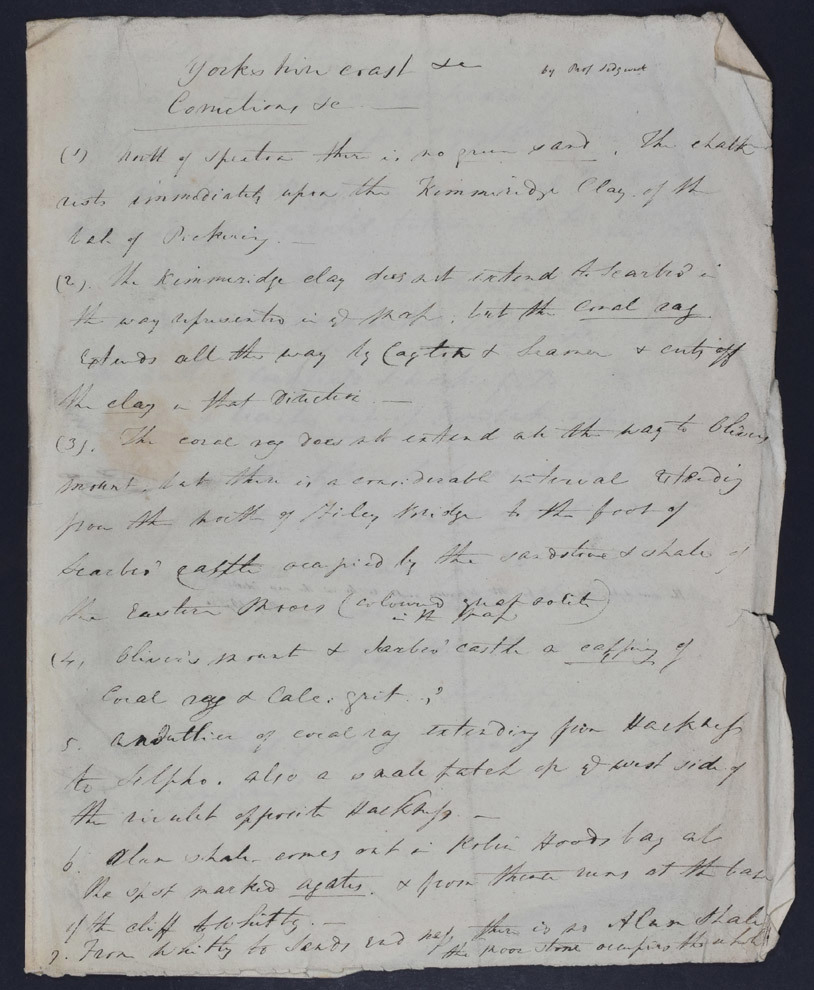 Yorkshire coast &c by Prof Sedgwick
Corrections &c —
(1) North of Speeton there is no green sand. The chalk
rests immediately upon the Kimmeridge Clay of the
Vale of Pickering. —
(2). The Kimmeridge clay does not extend to Scarbro' in
the way represented in yr Map, but the coral rag
extends all the way by Cayton & Seamer & cuts off
the clay in that direction. —
(3). The coral rag does not extend all the way to Olivers
Mount, but there is a considerable interval extending
from the north of Filey Bridge to the foot of
Scarbro' castle occupied by the sandstone & shale of
the Eastern Moors (coloured great oolite)
in the Map
(4) Oliver's Mount & Scarbro' castle a capping of
Coral rag & Calc. grit.
5. An outlier of coral rag extending from Hackness
to Silpho. also a small patch on ye west side of
the rivulet opposite Hackness. —
6. Alum shale comes out in Robin Hoods bay at
the spot marked agates. & from thence runs at the base
of the cliff to Whitby. —
7. From Whitby to Sands End there is no Alum Shale
the moor stone occupies the whole